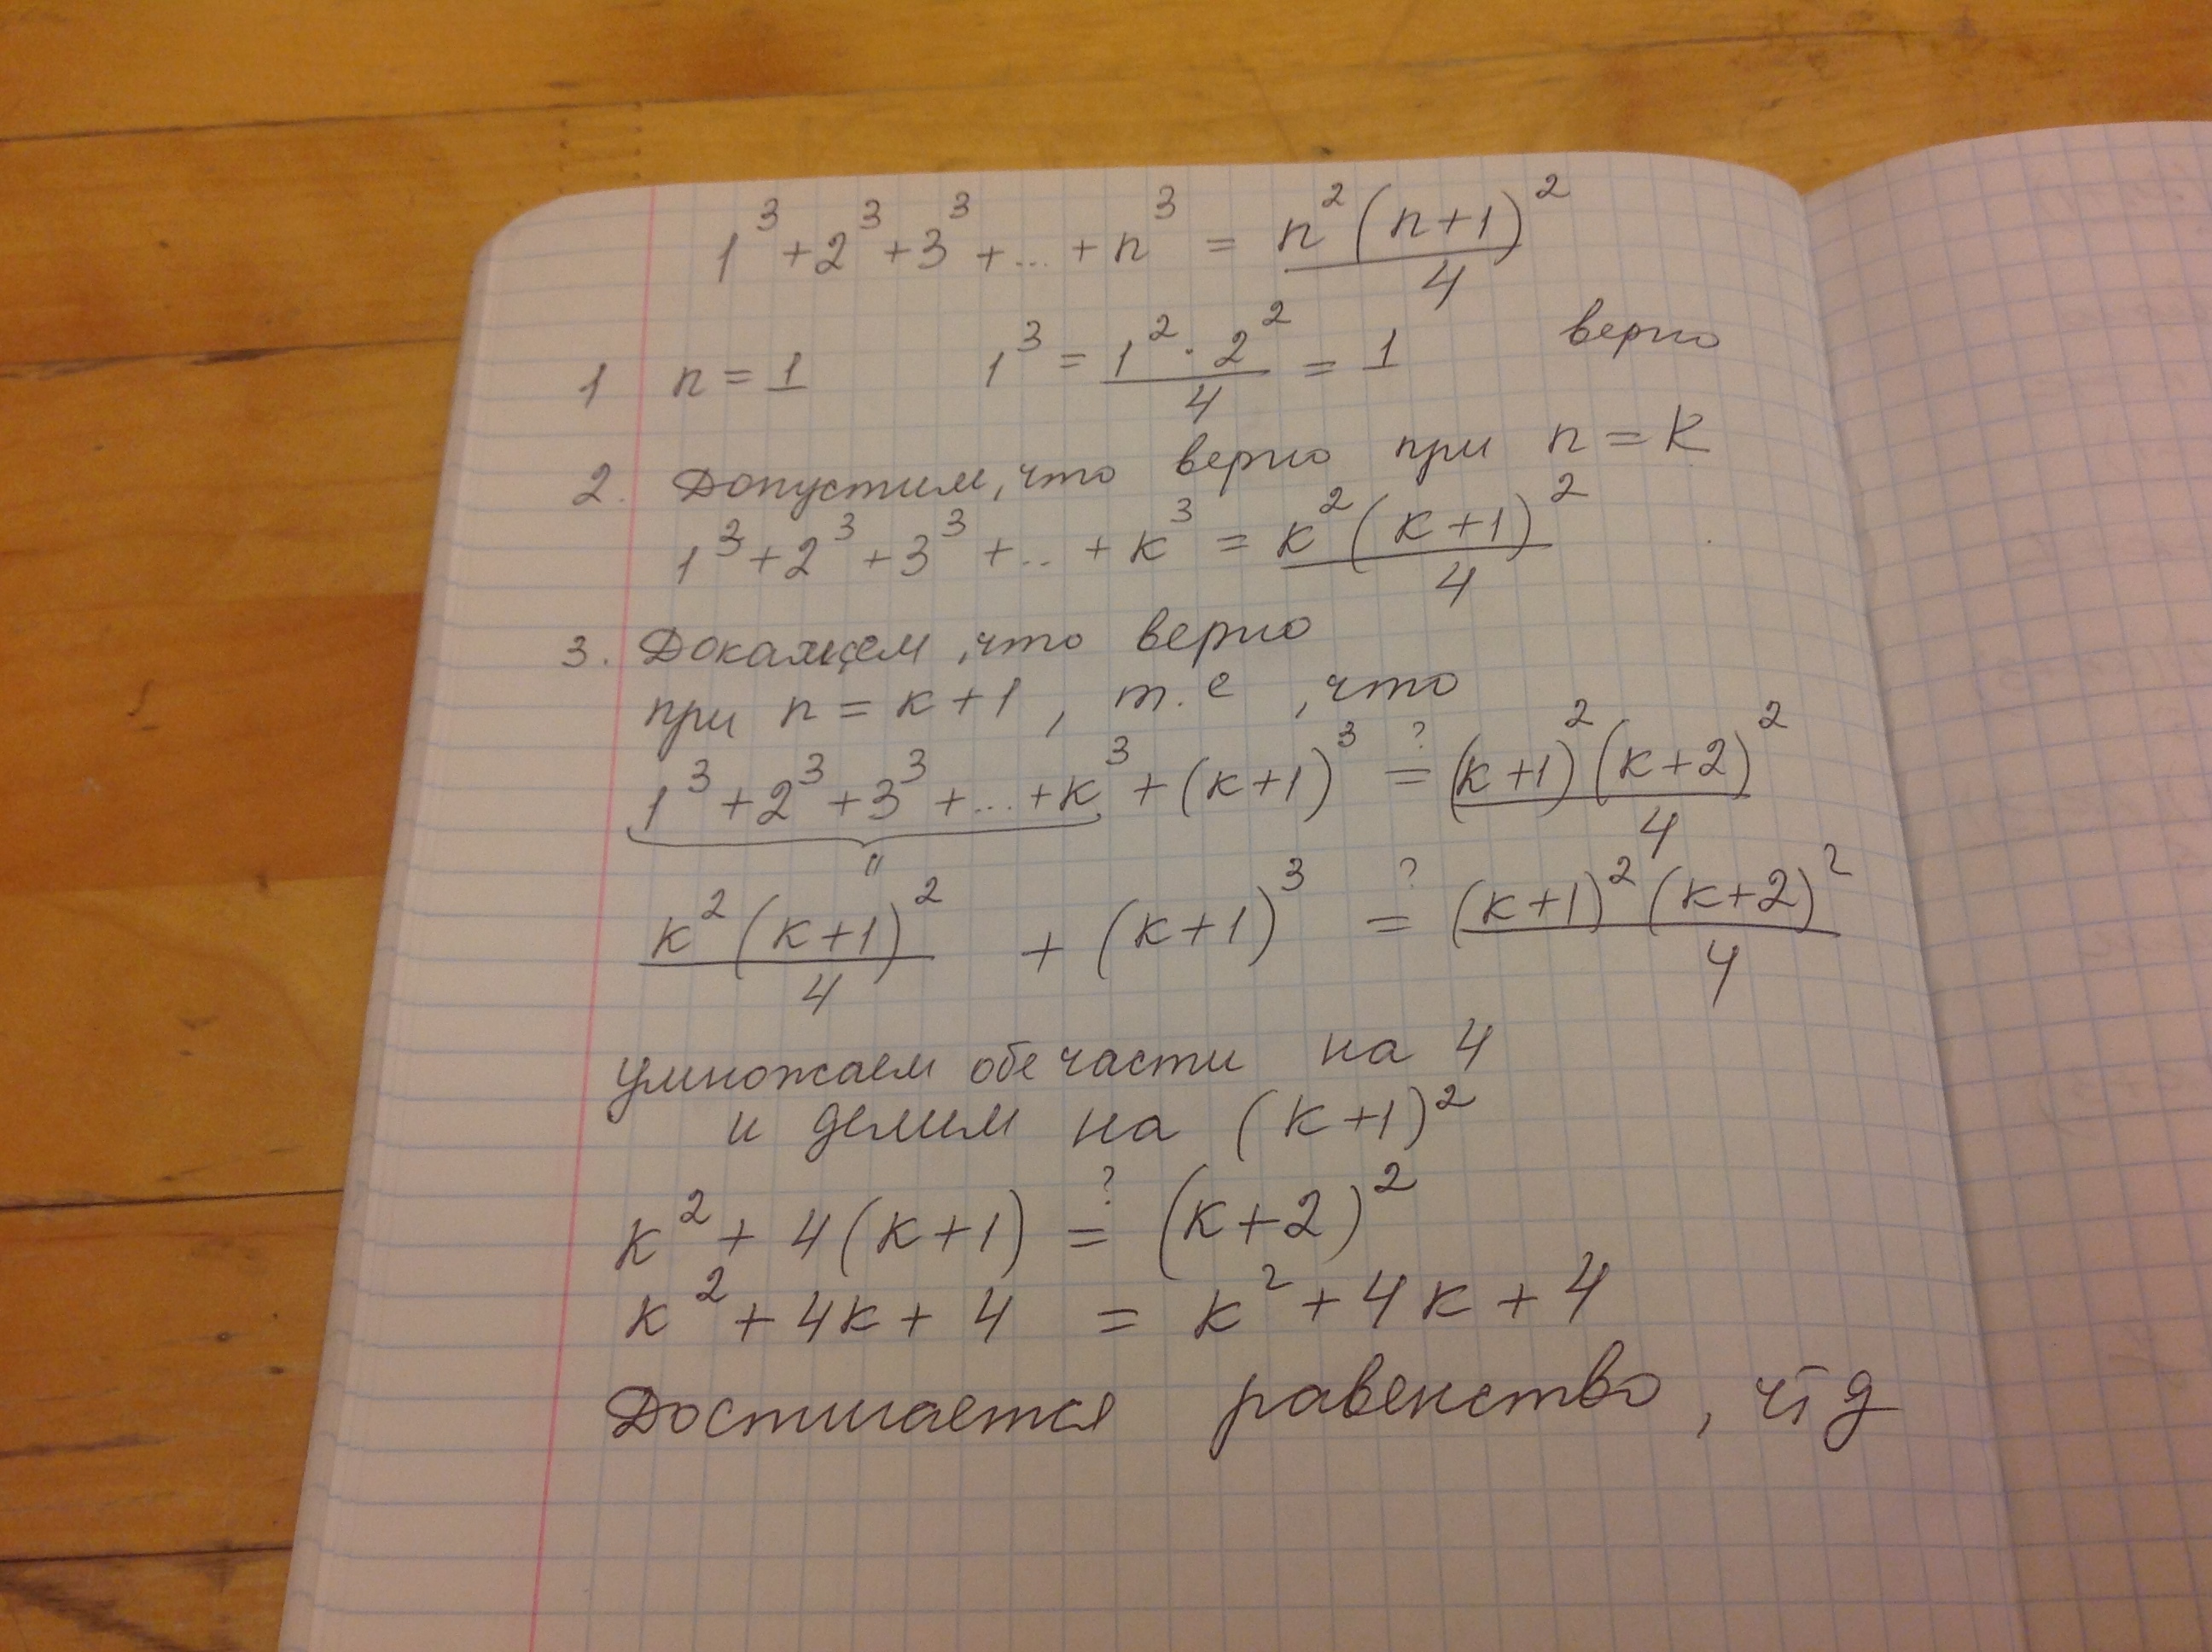 1³ + 2³ + 3³ + ... + n³ = n²(n+1)²/4
1 n = 1 1³ = 1² · 2²/4 = 1 верно
2. Допустим, что верно при n = k
1³ + 2³ + 3³ + .. + k³ = k²(k+1)²/4
3. Докажем, что верно
при n = k+1, т.е, что
1³ + 2³ + 3³ + ... + k³ + (k+1)³ ?= (k+1)²(k+2)²/4
"
k²(k+1)²/4 + (k+1)³ ?= (k+1)²(k+2)²/4
умножаем обе части на 4
и делим на (k+1)²
k² + 4(k+1) ?= (k+2)²
k² + 4k + 4 = k² + 4k + 4
Достигается равенство, чтд